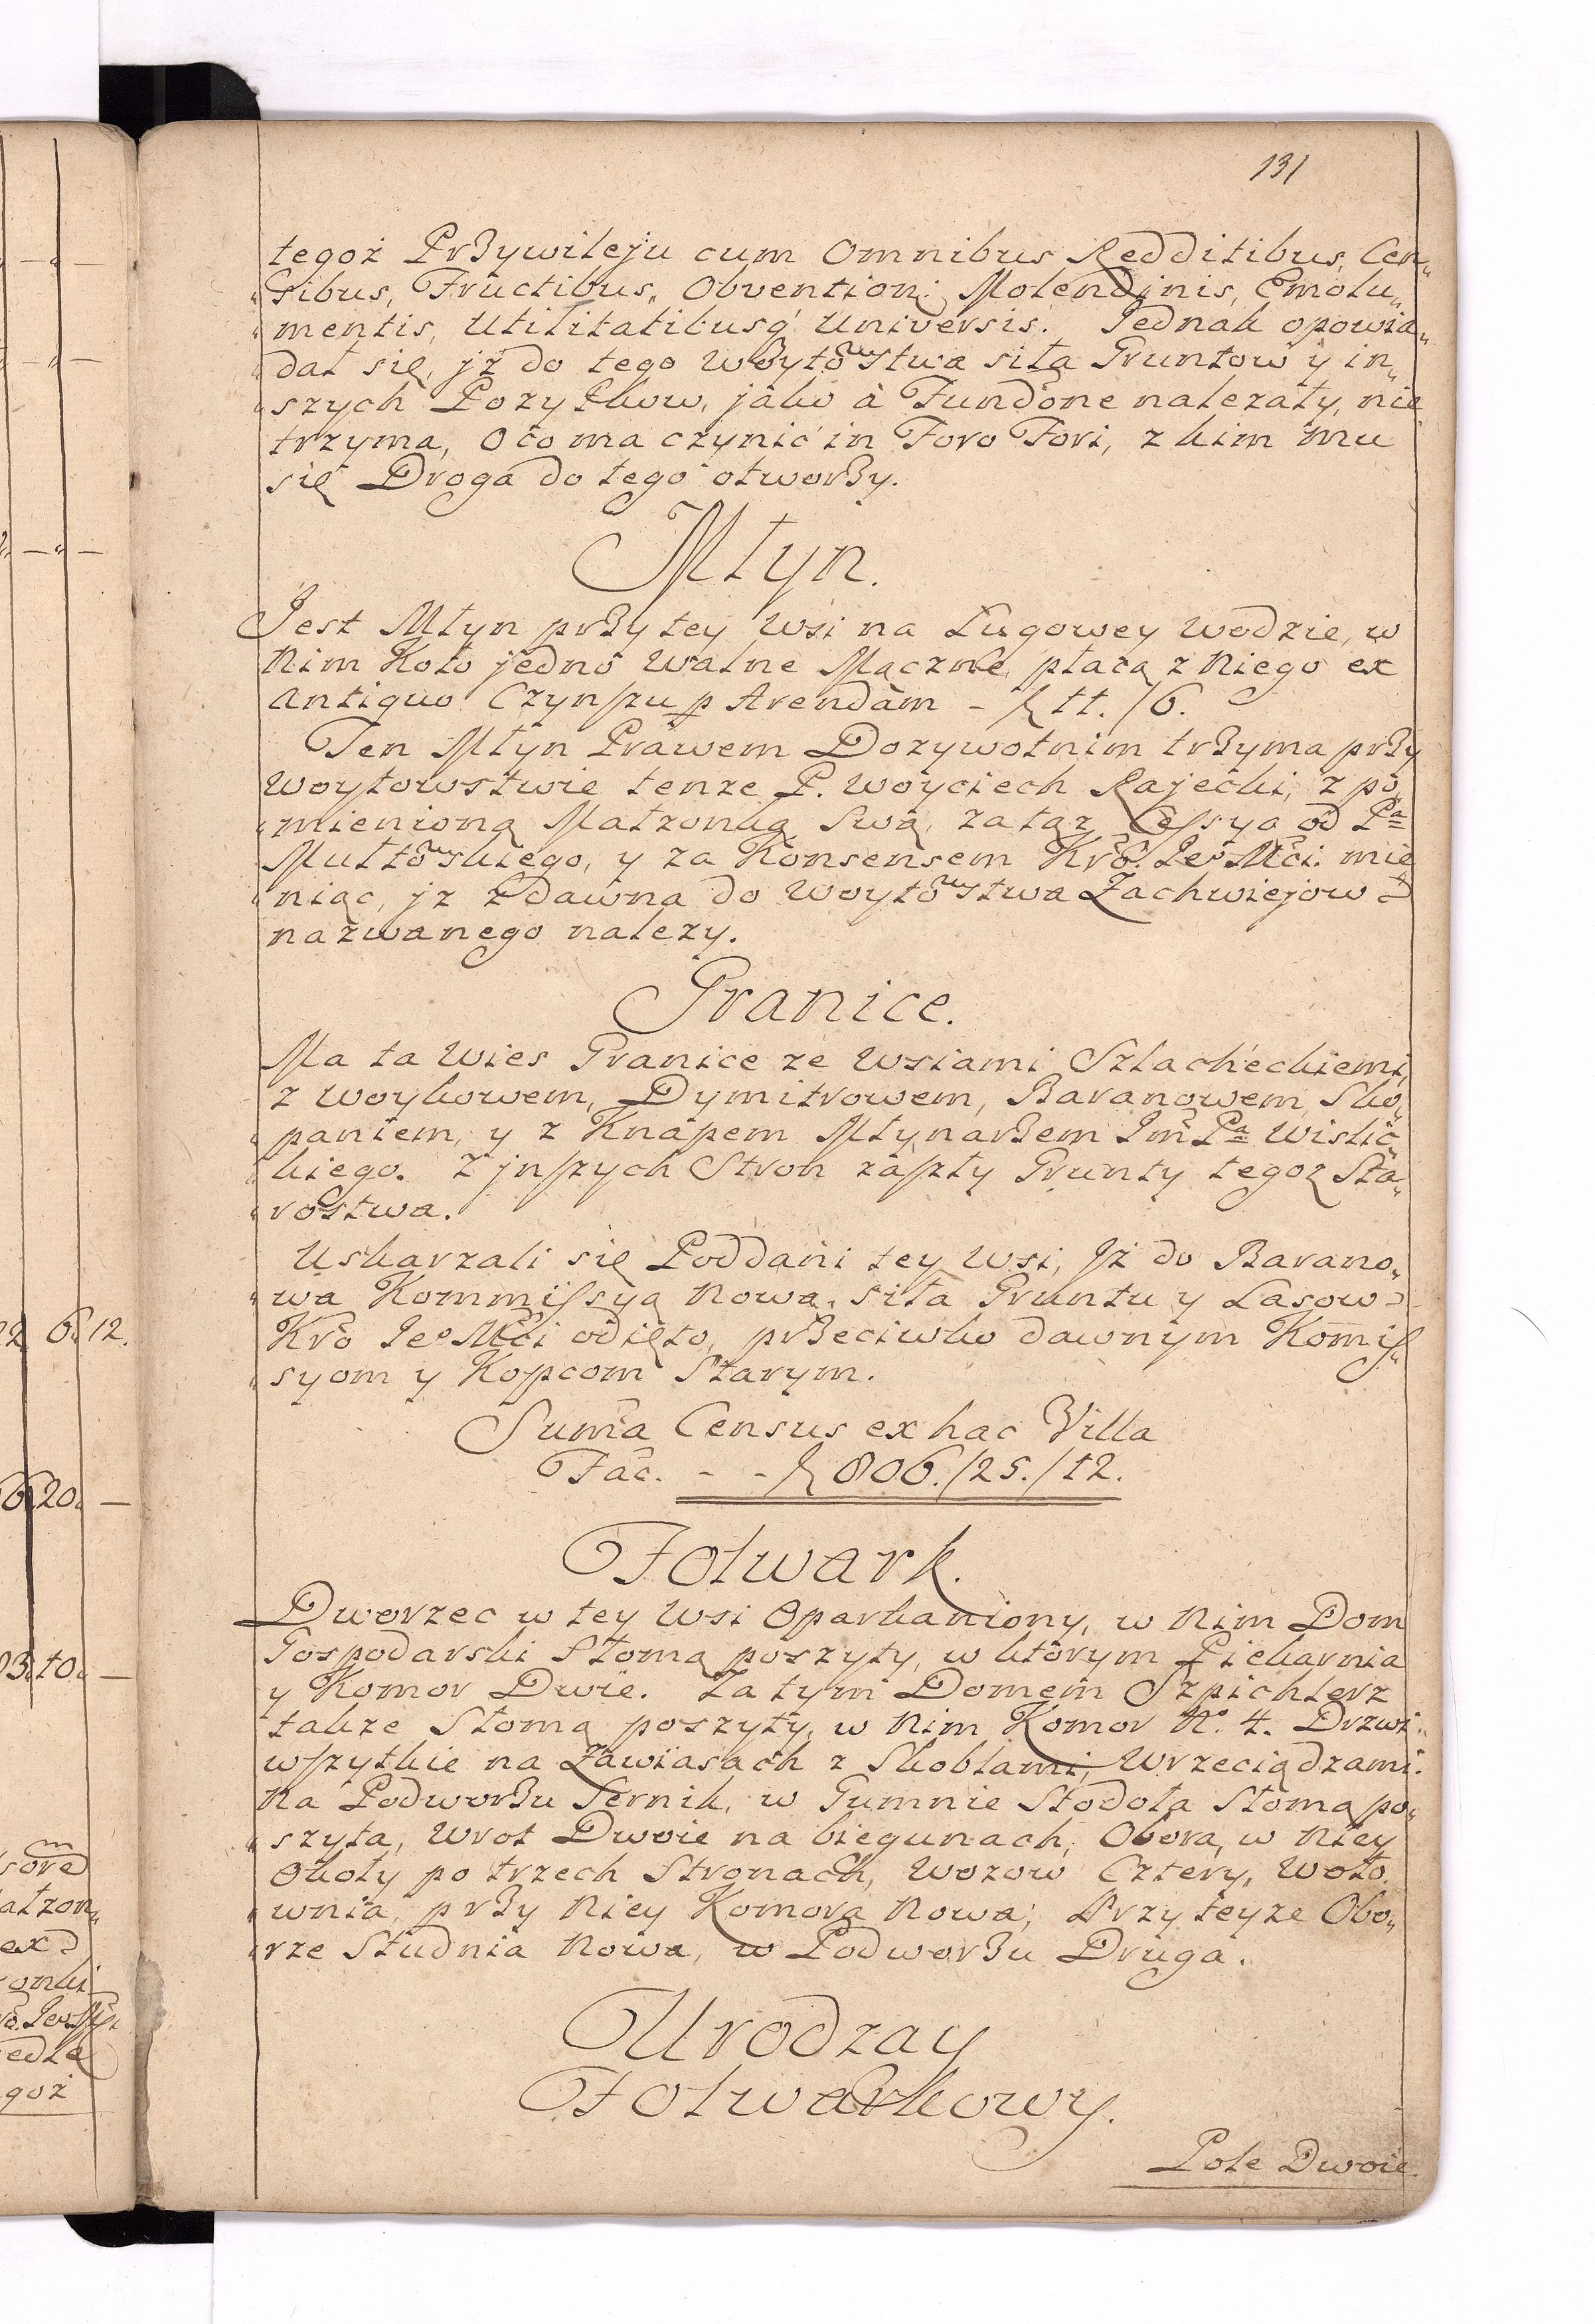 131
tegoż Przywileju cum Omnibus Redditibus, Cen„
„sibus, Fructibus, Obvention: Molendinis, Emolu„
„mentis, Utilitatibusq́ Universis. Jednak opowia„
„dał się, jż do tego Woytowstwa siła Gruntow y in„
„szych Pozytkow, jako à Fundõne nalezały, nie
trzyma, o co ma czynić in Foro Fori, z kim mu
się Droga do tego otworzy.
Młyn.
Jest Młyn przy tey Wsi na Ługowey Wodzie, w
Nim Koło jedno Walne Mączne, płacą z Niego ex
Antiquo Czynszu p Arendàm - ƒ 11. /6.
Ten Młyn Prawem Dozywotnim trzyma przy
Woytowstwie tenze P. Woyciech Rajecki, z po„
„mienioną Małzonką Swą, za tąz Cessyą od Pa
Mułtowskiego, y za Konsensem Kro. Jeo Mći. mie„
„niąc, jz zdawna do Woytowstwa Zachwiejow
nazwanego nalezy.
Granice.
Ma ta Wies Granice ze Wsiami Szlacheckiemi,
z Woykowem, Dymitrowem, Baranowem, Sko„
„paniem, y z Knapem Młynarzem Jm̃ Pa Wislic„
„kiego. Z jnszych Stron zaszły Grunty tegoz Sta„
„rostwa.
Uskarzali się Poddani tey Wsi, Jż do Barano„
„wa Kommissyą Nową, siła Gruntu y Lasow
Kro Jeo Mći odięto, przeciwko dawnym Komis„
„syom y Kopcom Starym.
Sum̃a Census ex hac Villa
Fac. - - ƒ 806./25./12.
Folwark.
Dworzec w tey Wsi Oparkaniony, w Nim Dom
Gospodarski Słomą poszyty, w ktorym Piekarnia
y Komor Dwie. Za tym Domem Szpichlerz
takze Słomą poszyty, w Nim Komor No. 4. Drzwi
wszytkie na Zawiasach z Skoblami, Wrzeciądzami.
Na Podworzu Sernik, w Gumnie Stodoła Słomą po„
„szyta, Wrot Dwoie na biegunach, Obora, w Niey
Okoły po trzech Stronach, Wozow Cztery, Woło„
„wnia, przy Niey Komora Nowa; Przy teyze Obo„
„rze Studnia Nowa, w Podworzu Druga.
Urodzay
Folwarkowy.
Pole Dwoie